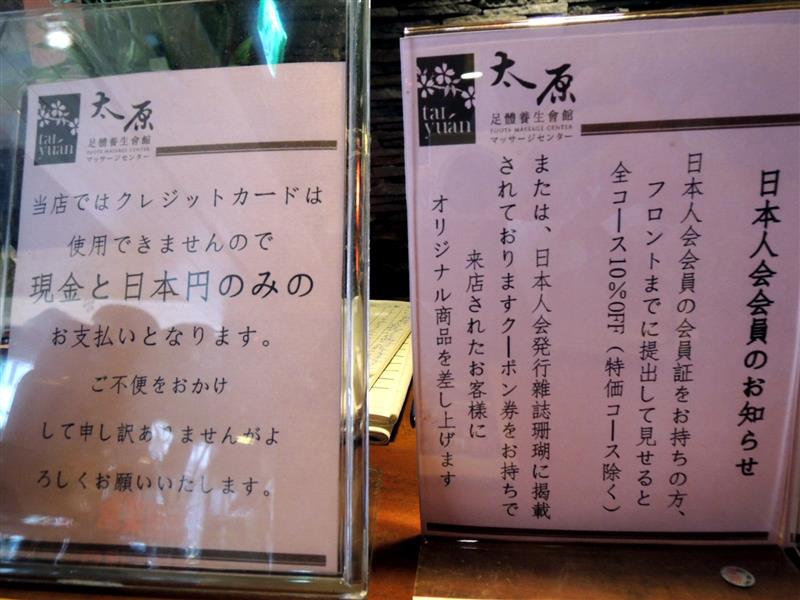 太原
tai
yuán
足體養生會館
FOOTS MASSAGE CENTER
マッサージセンター
当店ではクレジットカードは
使用できませんので
現金と日本円のみの
お支払いとなります。
ご不便をおかけ
して申し訳ありませんがよ
ろしくお願いいたします。
太原
tai
yuán
足體養生會館
FOOTS MASSAGE CENTER
マッサージセンター
日本人会会員のお知らせ
日本人会会員の会員証をお持ちの方、
フロントまでに提出して見せると
全コース10%OFF（特価コース除く）
または、日本人会発行雑誌珊瑚に掲載
されておりますクーポン券をお持ちで
来店されたお客様に
オリジナル商品を差し上げます